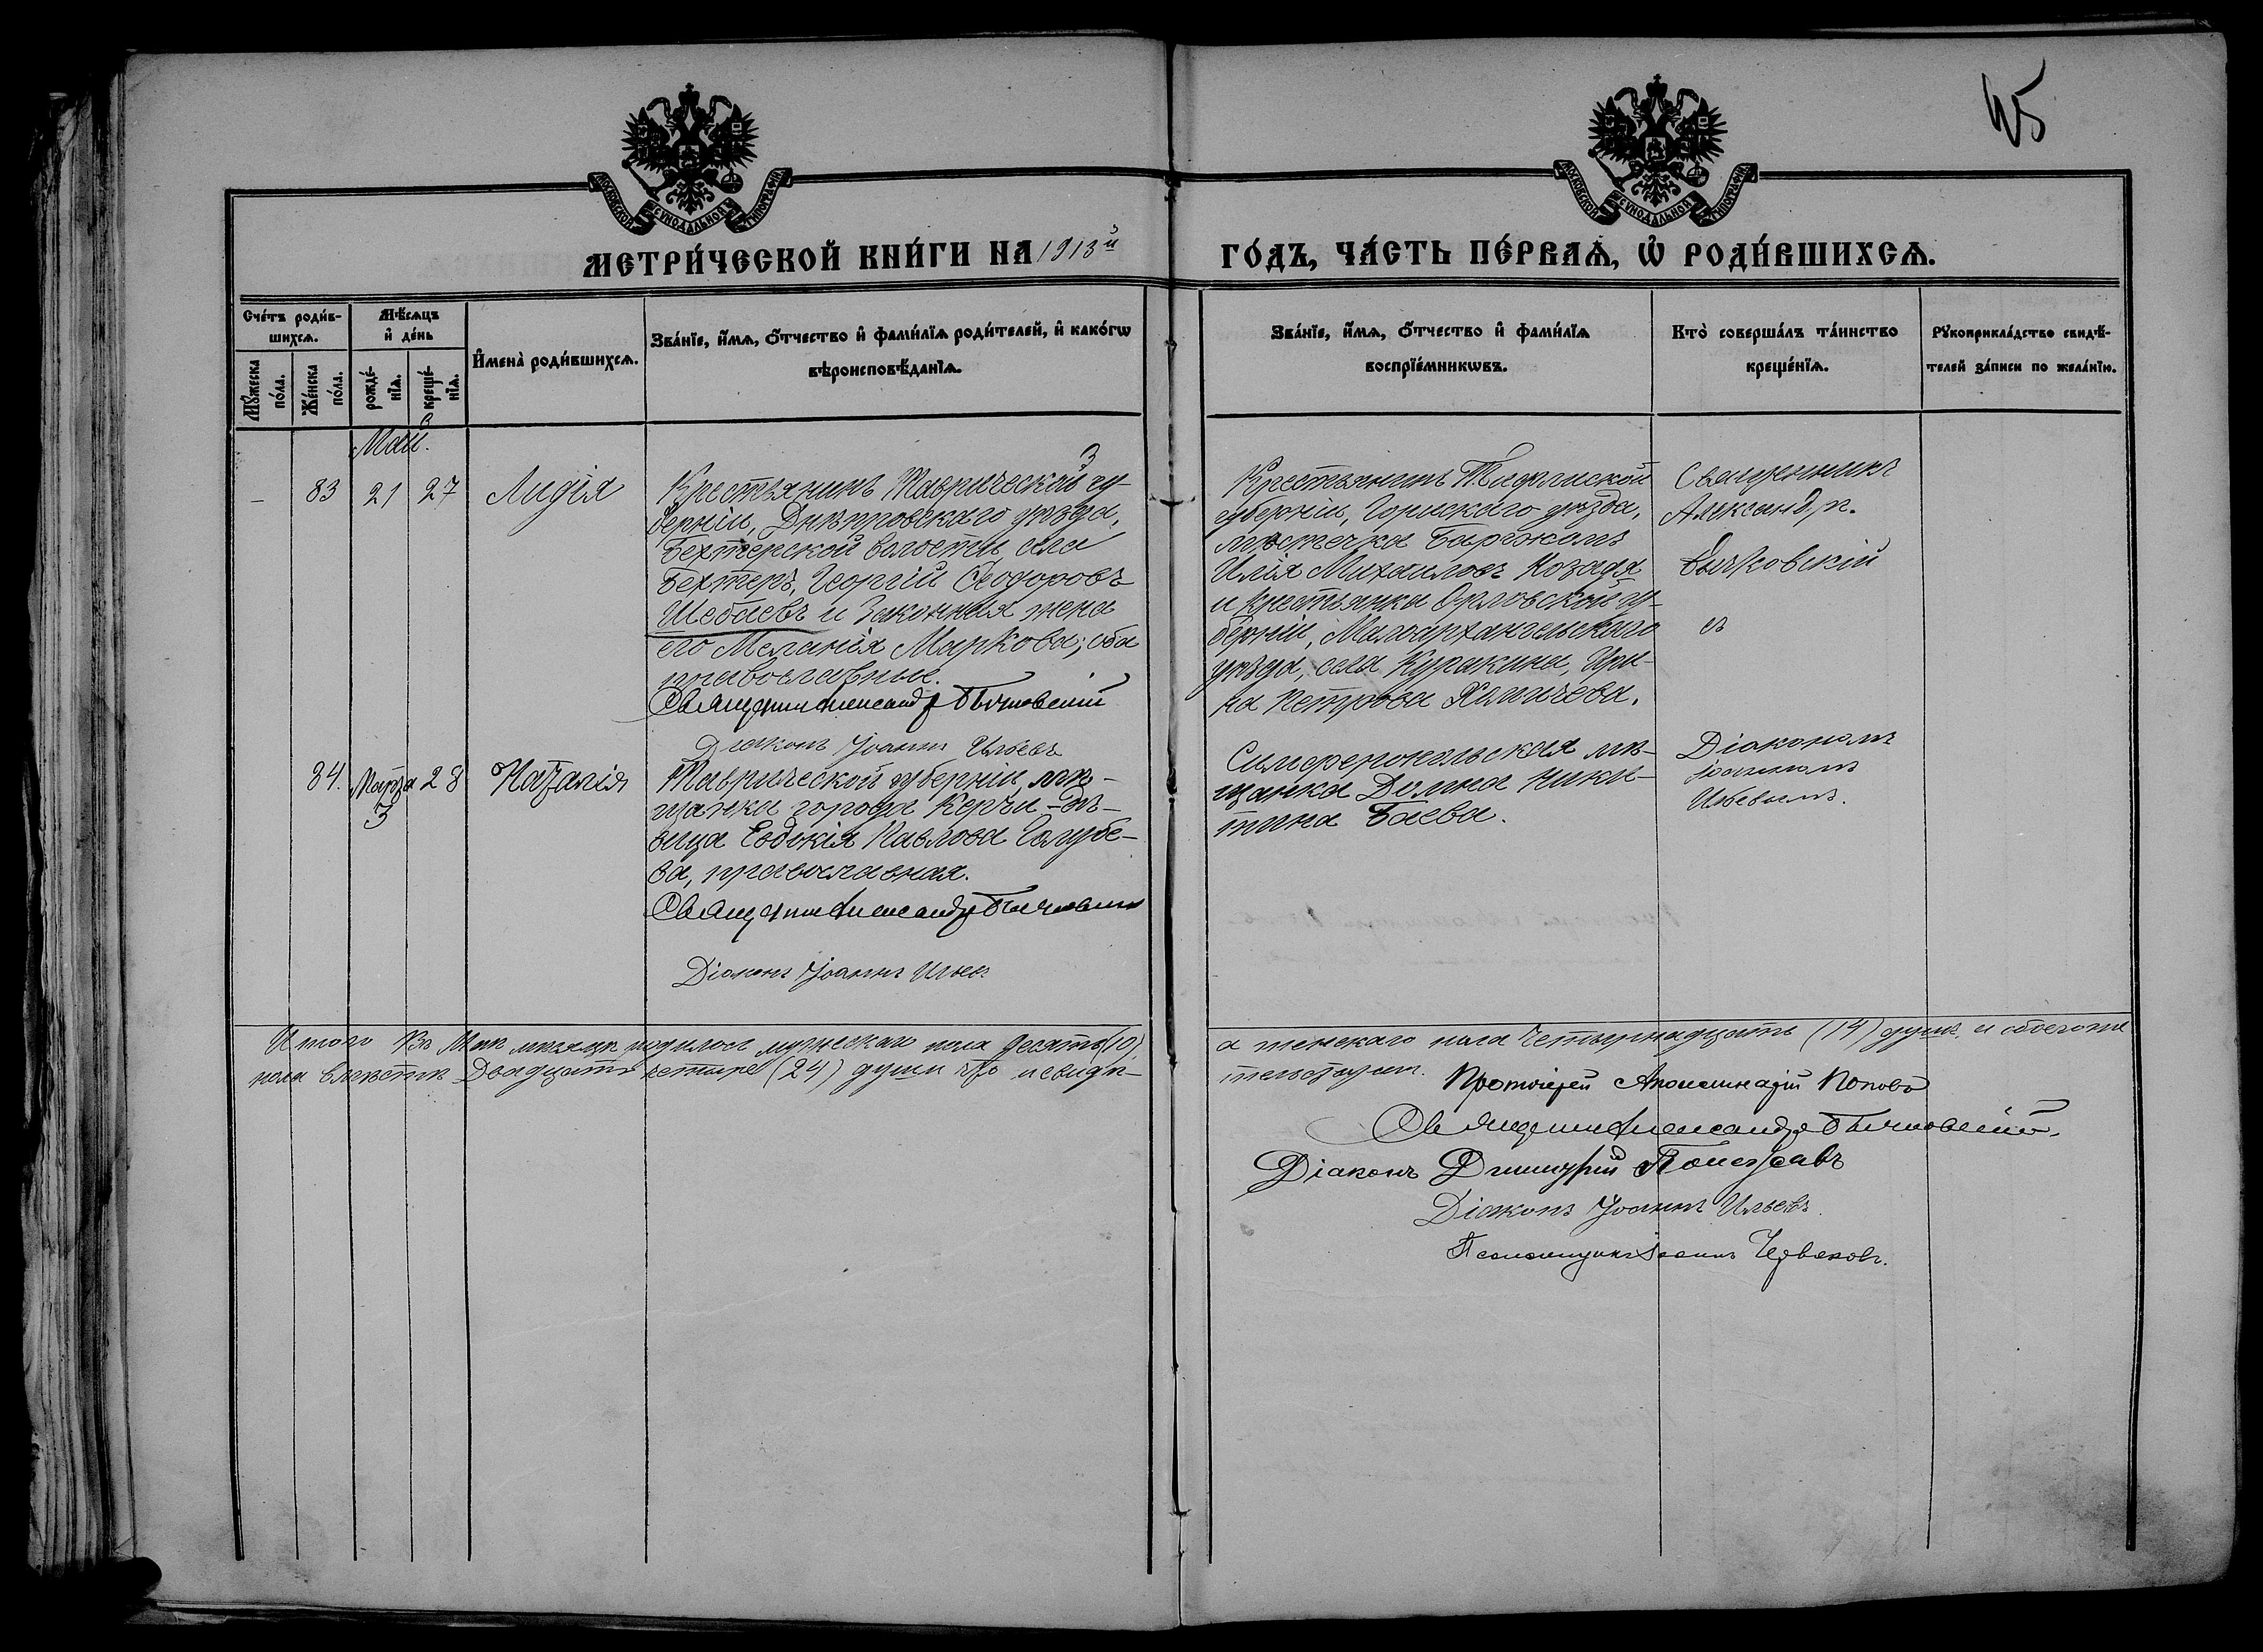 45
МОСКОВСКОЙ СУНОДАЛЬНОЙ ТИПОГРАФІИ
МОСКОВСКОЙ СУНОДАЛЬНОЙ ТИПОГРАФІИ
МЕТРИ́ЧЕСКОЙ КНИ́ГИ НА 1913й
ГО́ДЪ, ЧА́СТЬ ПЕ́РВАѦ, Ѡ҆ РОДИ́ВШИХСѦ.
Сче́тъ роди́в-
шихсѧ.
Мꙋ́жеска по́ла.
Же́нска по́ла.
Мѣ́сѧцъ
и҆ де́нь
рожде́-
нїѧ.
креще́-
нїѧ.
И҆мена̀ роди́вшихсѧ.
Зва́нїе, и҆́мѧ, ѻ҆́тчество и҆ фами́лїѧ роди́телей, и҆ како́гѡ
вѣроисповѣ́данїѧ.
Зва́нїе, и҆́мѧ, ѻ҆́тчество и҆ фами́лїѧ
воспрїе́мникѡвъ.
Кто̀ соверша́лъ та́инство
креще́нїѧ.
Рꙋкоприкла́дство свидѣ́-
телей за́писи по жела́нїю.
Май.
– 83 21 27 Лидія
Крестьянинъ Таврической гу-
берніи, Днѣпровскаго уѣзда,
Бехтерской волости, села
Бехтеръ, Георгій Ѳеодоровъ
Шебаевъ и законная жена
его Меланія Маркова; оба
православные.
Священникъ Александръ Бычковскій
Діаконъ Іоаннъ Ильевъ
Крестьянинъ Тифлиской
губерніи, Горискаго уѣзда,
мѣстечка Баржомъ
Илія Михаиловъ Козадя
и крестьянка Орловской гу-
берніи, Малоархангельскаго
уѣзда, села Куракина, Ири-
на Петрова Халичева.
Священникъ
Александръ
Бычковскій
съ
Діакономъ
Іоанномъ
Ильевымъ.
84. Марта 3 28 Наталія
Таврической губерніи, мѣ-
щанка города Керчи – дѣ-
вица Евдокія Павлова Голубе-
ва, православная.
Священникъ Александръ Бычковскій
Діаконъ Іоаннъ Ильевъ
Симферопольская мѣ-
щанка Домна Ники-
тина Баева.
Итого въ Маѣ мѣсяцѣ родилось мужескаго пола десять (10),
а женскаго пола четырнадцать (14) душъ, а обоего же
пола вмѣстѣ двадцать четыре (24) души что и свидѣ-
тельствуютъ.
Протоіерей Аполинарій Поповъ
Священникъ Александръ Бычковскій.
Діаконъ Димитрій
Діаконъ Іоаннъ Ильевъ.
Псаломщикъ Іоаннъ Червяковъ.